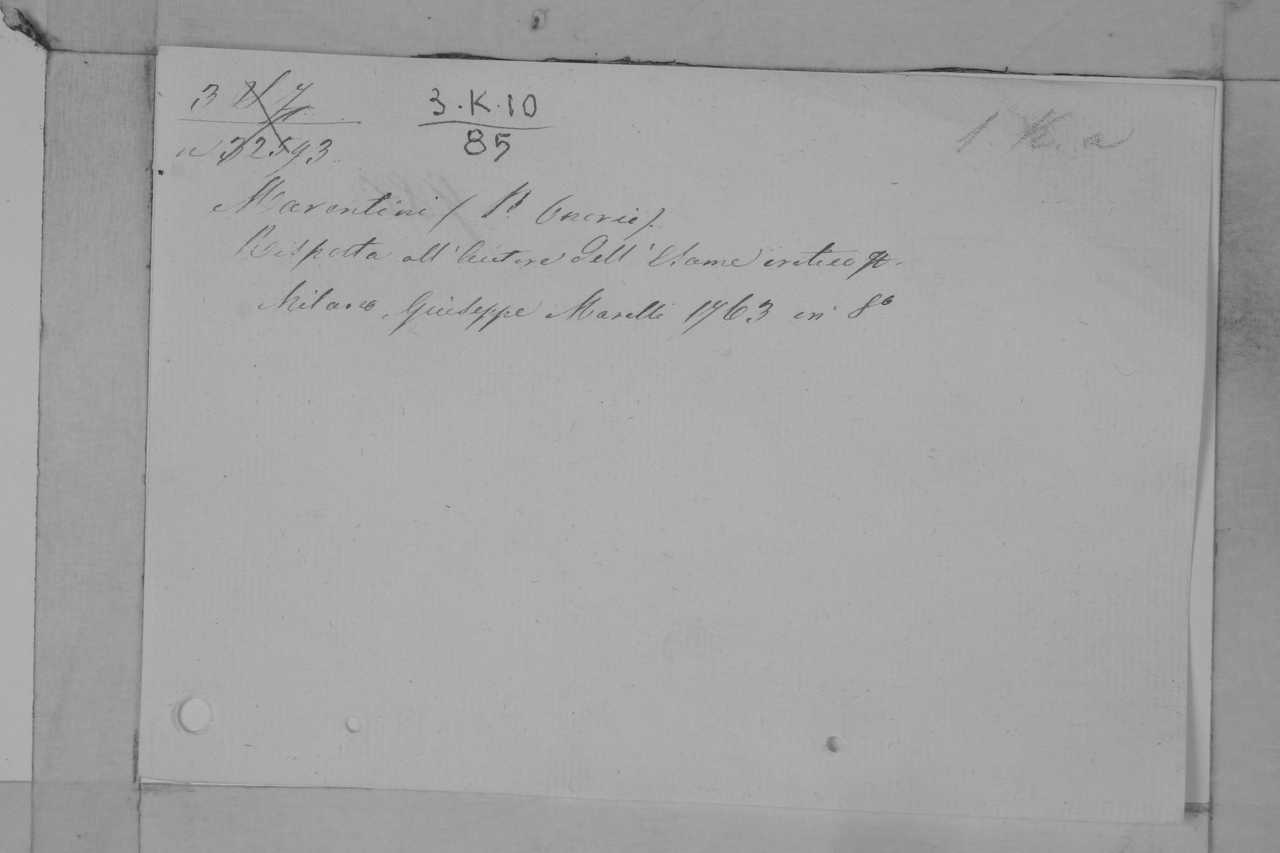 3
n 32593
3.K.10
85
1. K. a
Marentini (P. Onorio).
Risposta all'Autore dell'Esame critico
Milano, Giuseppe Marelli 1763 in 8º